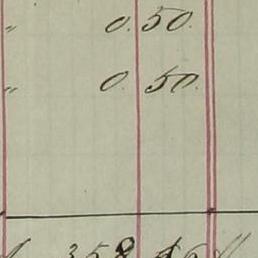 " 0.50.
" 0.50.
358